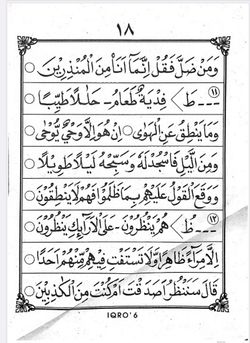 ١٨
وَمَنْ ضَلَّ فَقُلْ اِنَّمَآ اَنَا۠ مِنَ الْمُنْذِرِيْنَ ○
١١ --- ط › فِدْيَةٌ طَعَامُ - حَلٰلًا طَيِّبًا ○
وَمَا يَنْطِقُ عَنِ الْهَوٰى ○ اِنْ هُوَ اِلَّا وَحْيٌ يُّوْحٰى ○
وَمِنَ الَّيْلِ فَاسْجُدْ لَهٗ وَسَبِّحْهُ لَيْلًا طَوِيْلًا ○
وَوَقَعَ الْقَوْلُ عَلَيْهِمْ بِمَا ظَلَمُوْا فَهُمْ لَا يَنْطِقُوْنَ ○
١٢ --- ظ › هُمْ يُنْظَرُوْنَ - عَلَى الْاَرَآئِكِ يَنْظُرُوْنَ ○
اِلَّا مِرَآءً ظَاهِرًا وَّلَا تَسْتَفْتِ فِيْهِمْ مِّنْهُمْ اَحَدًا ○
قَالَ سَنَنْظُرُ اَصَدَقْتَ اَمْ كُنْتَ مِنَ الْكٰذِبِيْنَ ○
IQRO' 6